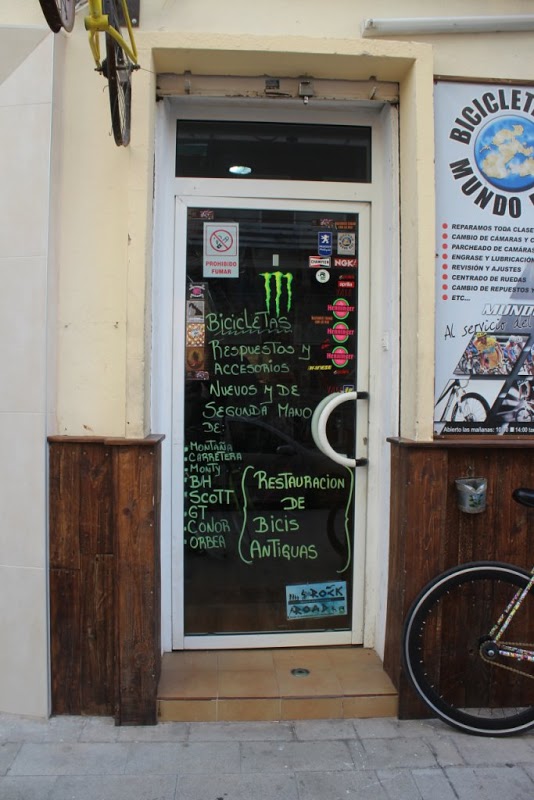 PROHIBIDO
FUMAR
CHAMPION
NGK
aprilia
BICICLETAS
RESPUESTOS Y
ACCESORIOS
NUEVOS Y DE
SEGUNDA MANO
DE:
MONTAÑA
CARRETERA
MONTY
BH
SCOTT
GT
CONOR
ORBEA
RESTAURACION
DE
BICIS
ANTIGUAS
ROCK
ROAD
BICICLET
MUNDO
REPARAMOS TODA CLASE
CAMBIO DE CÁMARAS Y C
PARCHEADO DE CAMARAS
ENGRASE Y LUBRICACIÓN
REVISIÓN Y AJUSTES
CENTRADO DE RUEDAS
CAMBIO DE REPUESTOS Y
ETC...
MUND
Al servicio del
Abierto las mañanas: